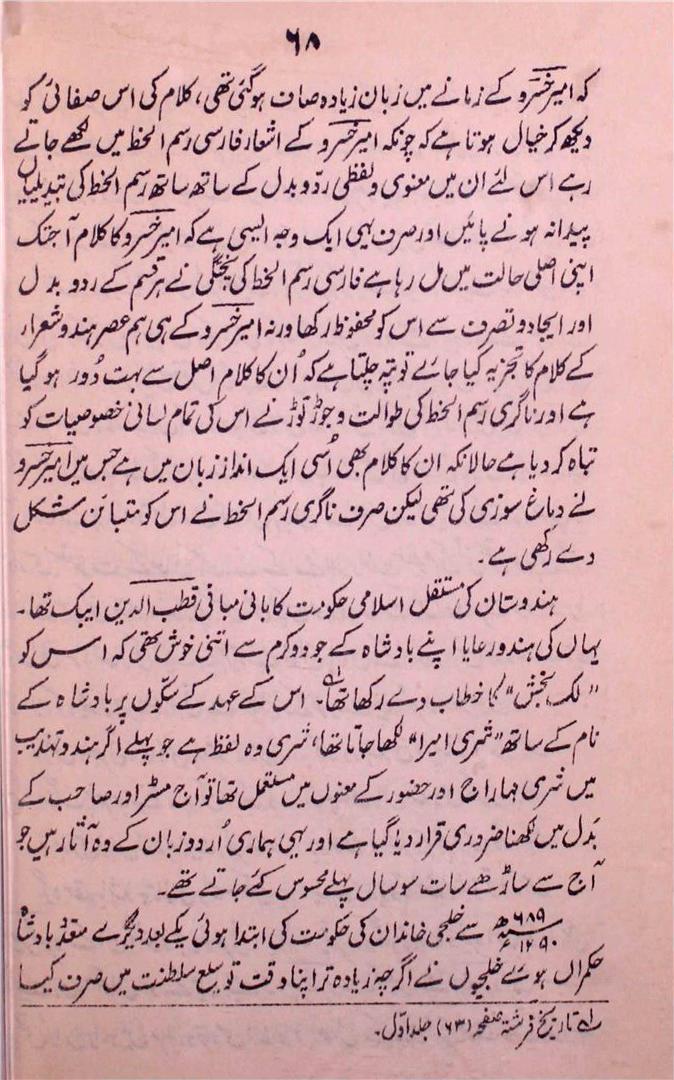 ۶۸
کہ امیر خسرو کے زمانے میں زبان زیادہ صاف ہوگئی تھی، کلام کی اس صفائی کو
دیکھ کر خیال ہوتا ہے کہ چونکہ امیر خسرو کے اشعار فارسی رسم الخط میں لکھے جاتے
رہے اس لئے ان میں معنوی و لفظی ردّ و بدل کے ساتھ ساتھ رسم الخط کی تبدیلیاں
پیدا نہ ہونے پائیں اور صرف یہی ایک وجہ ایسی ہے کہ امیر خسرو کا کلام آجتک
اپنی اصلی حالت میں مل رہا ہے فارسی رسم الخط کی پختگی نے ہر قسم کے ردو بدل
اور ایجاد و تصرف سے اس کو محفوظ رکھا ورنہ امیر خسرو کے ہی ہم عصر ہندو شعراء
کے کلام کا تجزیہ کیا جائے تو پتہ چلتا ہے کہ اُن کا کلام اصل سے بہت دُور ہو گیا
ہے اور ناگری رسم الخط کی طوالت و جوڑ توڑ نے اس کی تمام لسانی خصوصیات کو
تباہ کر دیا ہے حالانکہ ان کا کلام بھی اُسی ایک انداز زبان میں ہے جس میں امیر خسرو
نے دماغ سوزی کی تھی لیکن صرف ناگری رسم الخط نے اس کو متبائن شکل
دے رکھی ہے۔
ہندوستان کی مستقل اسلامی حکومت کا بانی مبانی قطب الدین ایبک تھا۔
یہاں کی ہندو رعایا اپنے بادشاہ کے جود و کرم سے اتنی خوش تھی کہ اس کو
"لکھ بخش" کا خطاب دے رکھا تھا۔ اس کے عہد کے سکّوں پر بادشاہ کے
نام کے ساتھ "شری امیرا" لکھا جاتا تھا، شری وہ لفظ ہے جو پہلے اگر ہندو تہذیب
میں شری مہاراج اور حضور کے معنوں میں مستعمل تھا تو آج مسٹر اور صاحب کے
بدل میں لکھنا ضروری قرار دیا گیا ہے اور یہی ہماری اُردو زبان کے وہ آثار ہیں جو
آج سے ساڑھے سات سو سال پہلے محسوس کئے جاتے تھے۔
۶۸۹ھ ۱۲۹۰ء سے خلجی خاندان کی حکومت کی ابتدا ہوئی یکے بعد دیگرے متعدد بادشاہ
حکمراں ہوئے خلجیوں نے اگرچہ زیادہ تر اپنا وقت توسیع سلطنت میں صرف کیا
لہ تاریخ فرشتہ صفحہ (۶۳) جلد اوّل۔